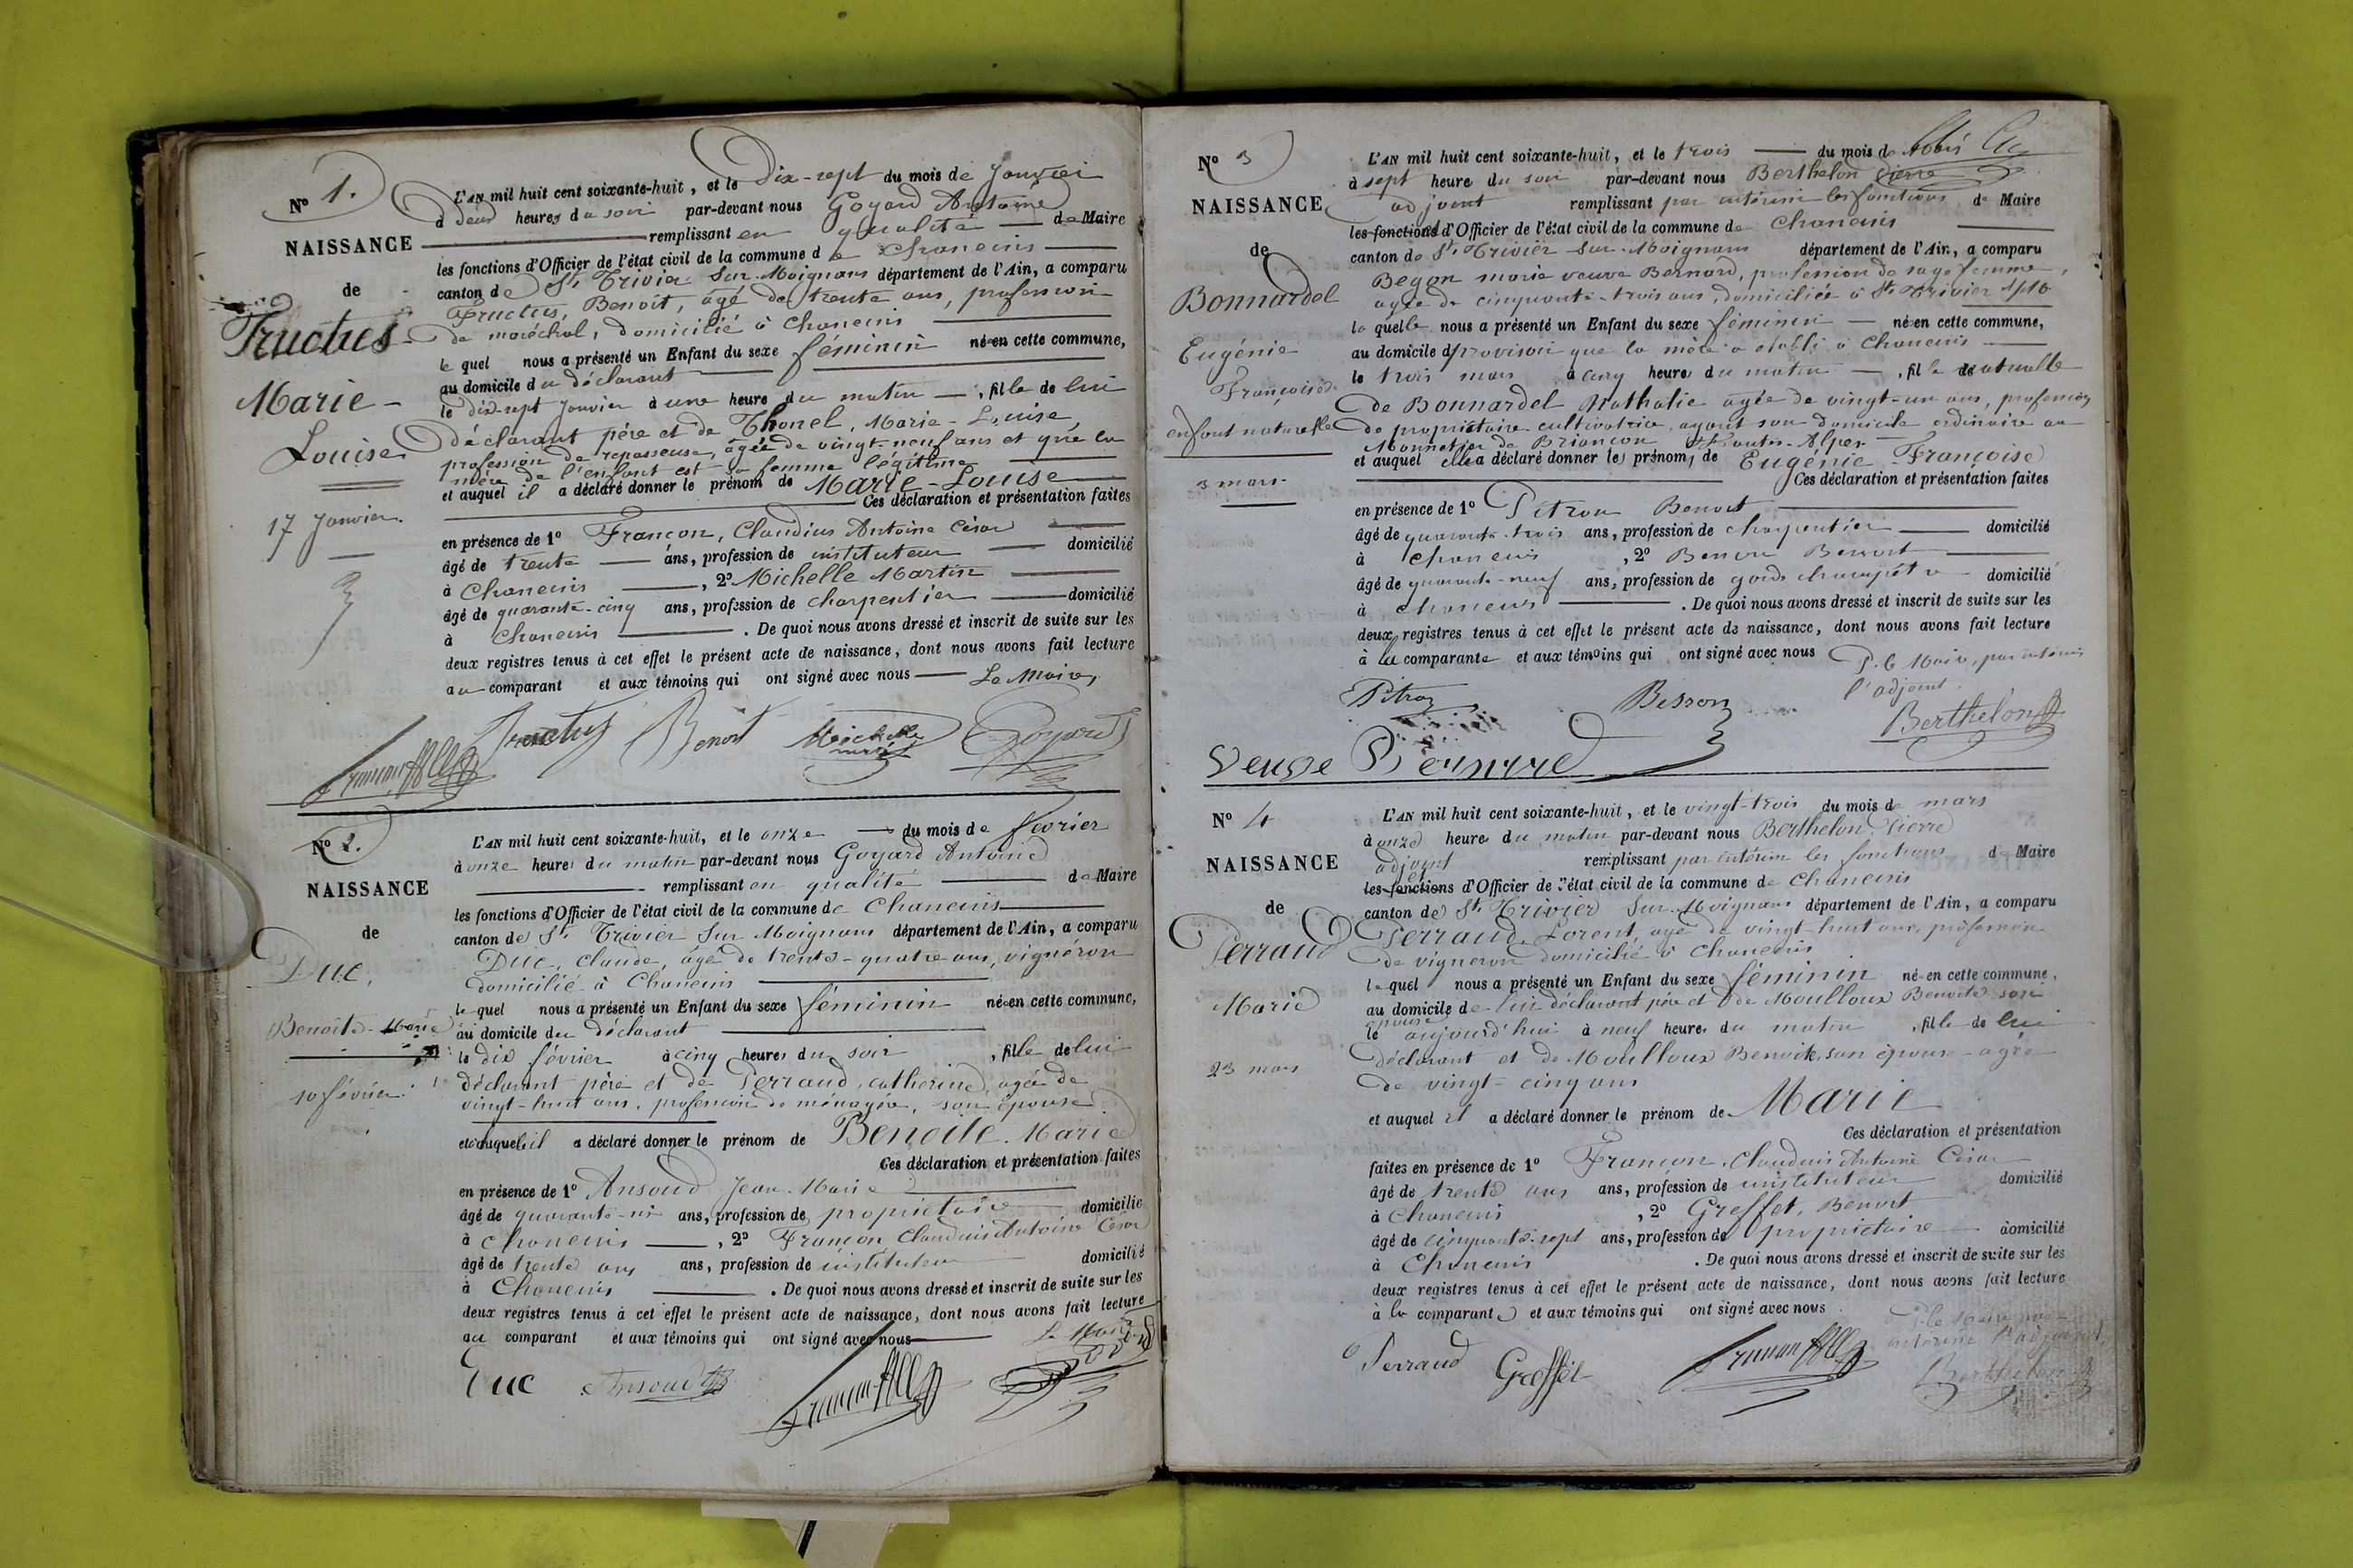 N° 1.
NAISSANCE
de
Fructus
Marie-
Louise
17 Janvier.
L'AN mil huit cent soixante-huit, et le Dix-sept du mois de Janvier
à deux heures du soir par-devant nous Goyard Antoine
remplissant en qualité de Maire
les fonctions d'Officier de l'état civil de la commune de Chaneins
canton de St. Trivier Sur-Moignans département de l'Ain, a comparu
Fructus, Benoît, âgé de trente ans, profession
de maréchal, domicilié à Chaneins
le quel nous a présenté un Enfant du sexe féminin né en cette commune,
au domicile du déclarant
le dix-sept Janvier à une heure du matin, fille de lui
déclarant père et de Thonel, Marie-Louise,
profession de repasseuse, âgée de vingt-neuf ans et que la
mère de l'enfant est sa femme légitime
et auquel il a déclaré donner le prénom de Marie-Louise
Ces déclaration et présentation faites
en présence de 1° Françon, Claudius Antoine César
âgé de trente ans, profession de instituteur domicilié
à Chaneins, 2° Michelle Martin
âgé de quarante-cinq ans, profession de charpentier domicilié
à Chaneins. De quoi nous avons dressé et inscrit de suite sur les
deux registres tenus à cet effet le présent acte de naissance, dont nous avons fait lecture
au comparant et aux témoins qui ont signé avec nous Le Maire,
Fructus Benoit Michelle Goyard
N° 2.
NAISSANCE
de
Duc,
Benoite-Marie
10 février.
L'AN mil huit cent soixante-huit, et le onze du mois de février
à onze heures du matin par-devant nous Goyard Antoine
remplissant en qualité de Maire
les fonctions d'Officier de l'état civil de la commune de Chaneins
canton de St. Trivier Sur Moignans département de l'Ain, a comparu
Duc, Claude, âgé de trente-quatre ans, vignéron
domicilié à Chaneins
le quel nous a présenté un Enfant du sexe féminin né en cette commune,
au domicile du déclarant
le dix février à cinq heures du soir, fille de lui
déclarant père et de Perraud, Catherine, agée de
vingt-huit ans, profession de ménagère, son épouse
et auquel il a déclaré donner le prénom de Benoite Marie
Ces déclaration et présentation faites
en présence de 1° Ansoud Jean-Marie
âgé de quarante-six ans, profession de propriétaire domicilié
à Chaneins, 2° Françon Claudius Antoine César
âgé de trente ans ans, profession de instituteur domicilié
à Chaneins. De quoi nous avons dressé et inscrit de suite sur les
deux registres tenus à cet effet le présent acte de naissance, dont nous avons fait lecture
au comparant et aux témoins qui ont signé avec nous Le Maire
Duc Ansoud
N° 3
NAISSANCE
de
Bonnardel
Eugénie
Françoise
enfant naturelle
3 mars.
L'AN mil huit cent soixante-huit, et le trois du mois de Mars
à sept heure du soir par-devant nous Berthelon Pierre
adjoint remplissant par intérim les fonctions de Maire
les fonctions d'Officier de l'état civil de la commune de Chaneins
canton de St. Trivier Sur-Moignans département de l'Ain, a comparu
Begon marie veuve Bernard, profession de sage femme,
agée de cinquante-trois ans, domiciliée à St. Trivier
la quelle nous a présenté un Enfant du sexe féminin né en cette commune,
au domicile provisoir que la mère a établi à Chaneins
le trois mars à cinq heures du matin, fille naturelle
de Bonnardel Nathalie agée de vingt-un ans, profession
de propriétaire cultivatrice, ayant son domicile ordinaire au
Monnetier de Briançon Hautes-Alpes
et auquel elle a déclaré donner les prénoms de Eugénie-Françoise
Ces déclaration et présentation faites
en présence de 1° Pitron Benoit
âgé de quarante-trois ans, profession de charpentier domicilié
à Chaneins, 2° Besson Benoit
âgé de quarante-neuf ans, profession de garde champêtre domicilié
à Chaneins. De quoi nous avons dressé et inscrit de suite sur les
deux registres tenus à cet effet le présent acte de naissance, dont nous avons fait lecture
à la comparante et aux témoins qui ont signé avec nous P. le Maire, par intérim
l'adjoint.
Pitron Besson Berthelon
Veuve Bernard
N° 4
NAISSANCE
de
Perraud
Marie
23 mars
L'AN mil huit cent soixante-huit, et le vingt-trois du mois de mars
à onze heure du matin par-devant nous Berthelon Pierre
adjoint remplissant par intérim les fonctions de Maire
les fonctions d'Officier de l'état civil de la commune de Chaneins
canton de St. Trivier Sur-Moignans département de l'Ain, a comparu
Perraud, Lorent, agé de vingt-huit ans, profession
de vigneron domicilié à Chaneins
le quel nous a présenté un Enfant du sexe féminin né en cette commune,
au domicile de lui déclarant père et de Moulloux Benoite son
épouse
le aujourd'hui à neuf heures du matin, fille de lui
déclarant et de Moulloux Benoite, son épouse agée
de vingt-cinq ans
et auquel il a déclaré donner le prénom de Marie
Ces déclaration et présentation
faites en présence de 1° Françon, Claudius Antoine César
âgé de trente ans ans, profession de instituteur domicilié
à Chaneins, 2° Greffet, Benoit
âgé de cinquante-sept ans, profession de propriétaire domicilié
à Chaneins. De quoi nous avons dressé et inscrit de suite sur les
deux registres tenus à cet effet le présent acte de naissance, dont nous avons fait lecture
à la comparant et aux témoins qui ont signé avec nous
P. le Maire par
intérim l'adjoint,
Perraud Greffet Berthelon